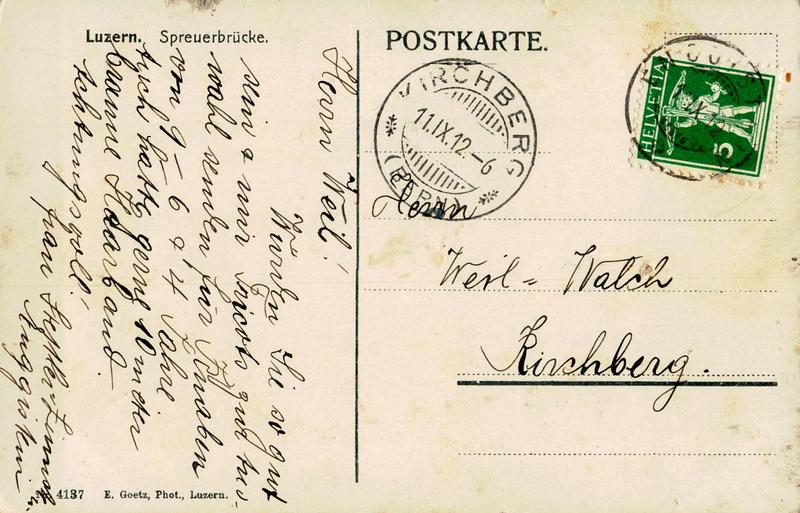 Luzern. Spreuerbrücke.
POSTKARTE.
KIRCHBERG
11.IX.12.-6
(BERN)
HELVETIA
5
Herrn
Weil = Walch
Kirchberg.
Herrn Weil!
Würden Sie so gut
sein & mir Tricots gut
wahl senden für Knaben
von 9 – 6 & 4 Jahre
hatte gerne 10 meter
braune Haarband
Achtungsvoll!
Frau
4137 E. Goetz, Phot., Luzern.